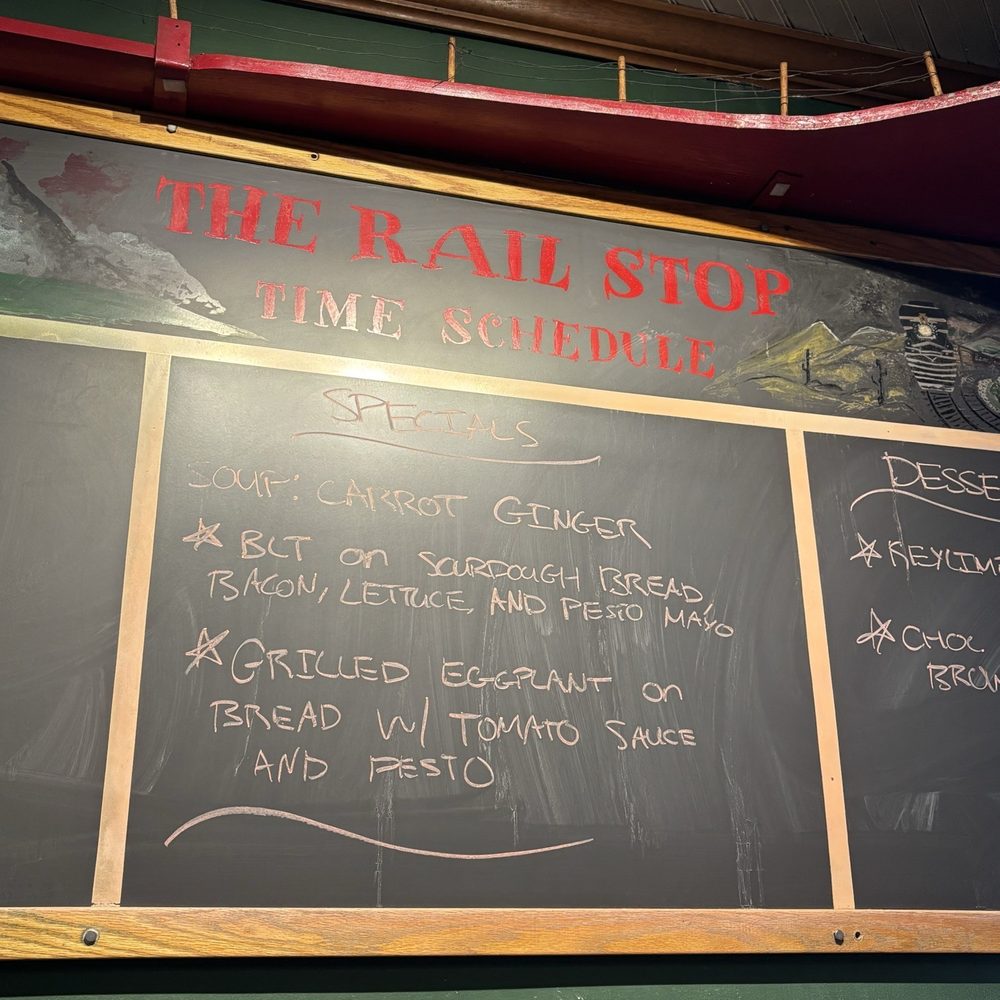 THE RAIL STOP
TIME SCHEDULE
SPECIALS
SOUP: CARROT GINGER
BLT on SOURDOUGH BREAD,
BACON, LETTUCE, AND PESTO MAYO
GRILLED EGGPLANT on
BREAD W/ TOMATO SAUCE
AND PESTO
DESSE
KEYLIME
CHOC.
BROW